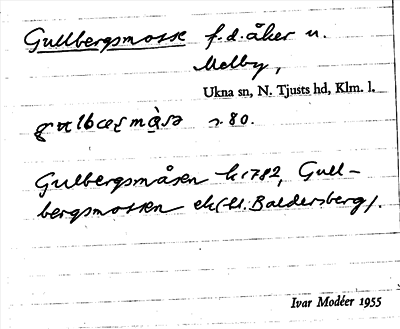 Gullbergsmosse f.d. åker u.
Melby,
Ukna sn, N. Tjusts hd, Klm. l.
80.
Gulbergsmåsen k 1782, Gull-
bergsmossen ek (hl. Baldersberg).
Ivar Modéer 1955